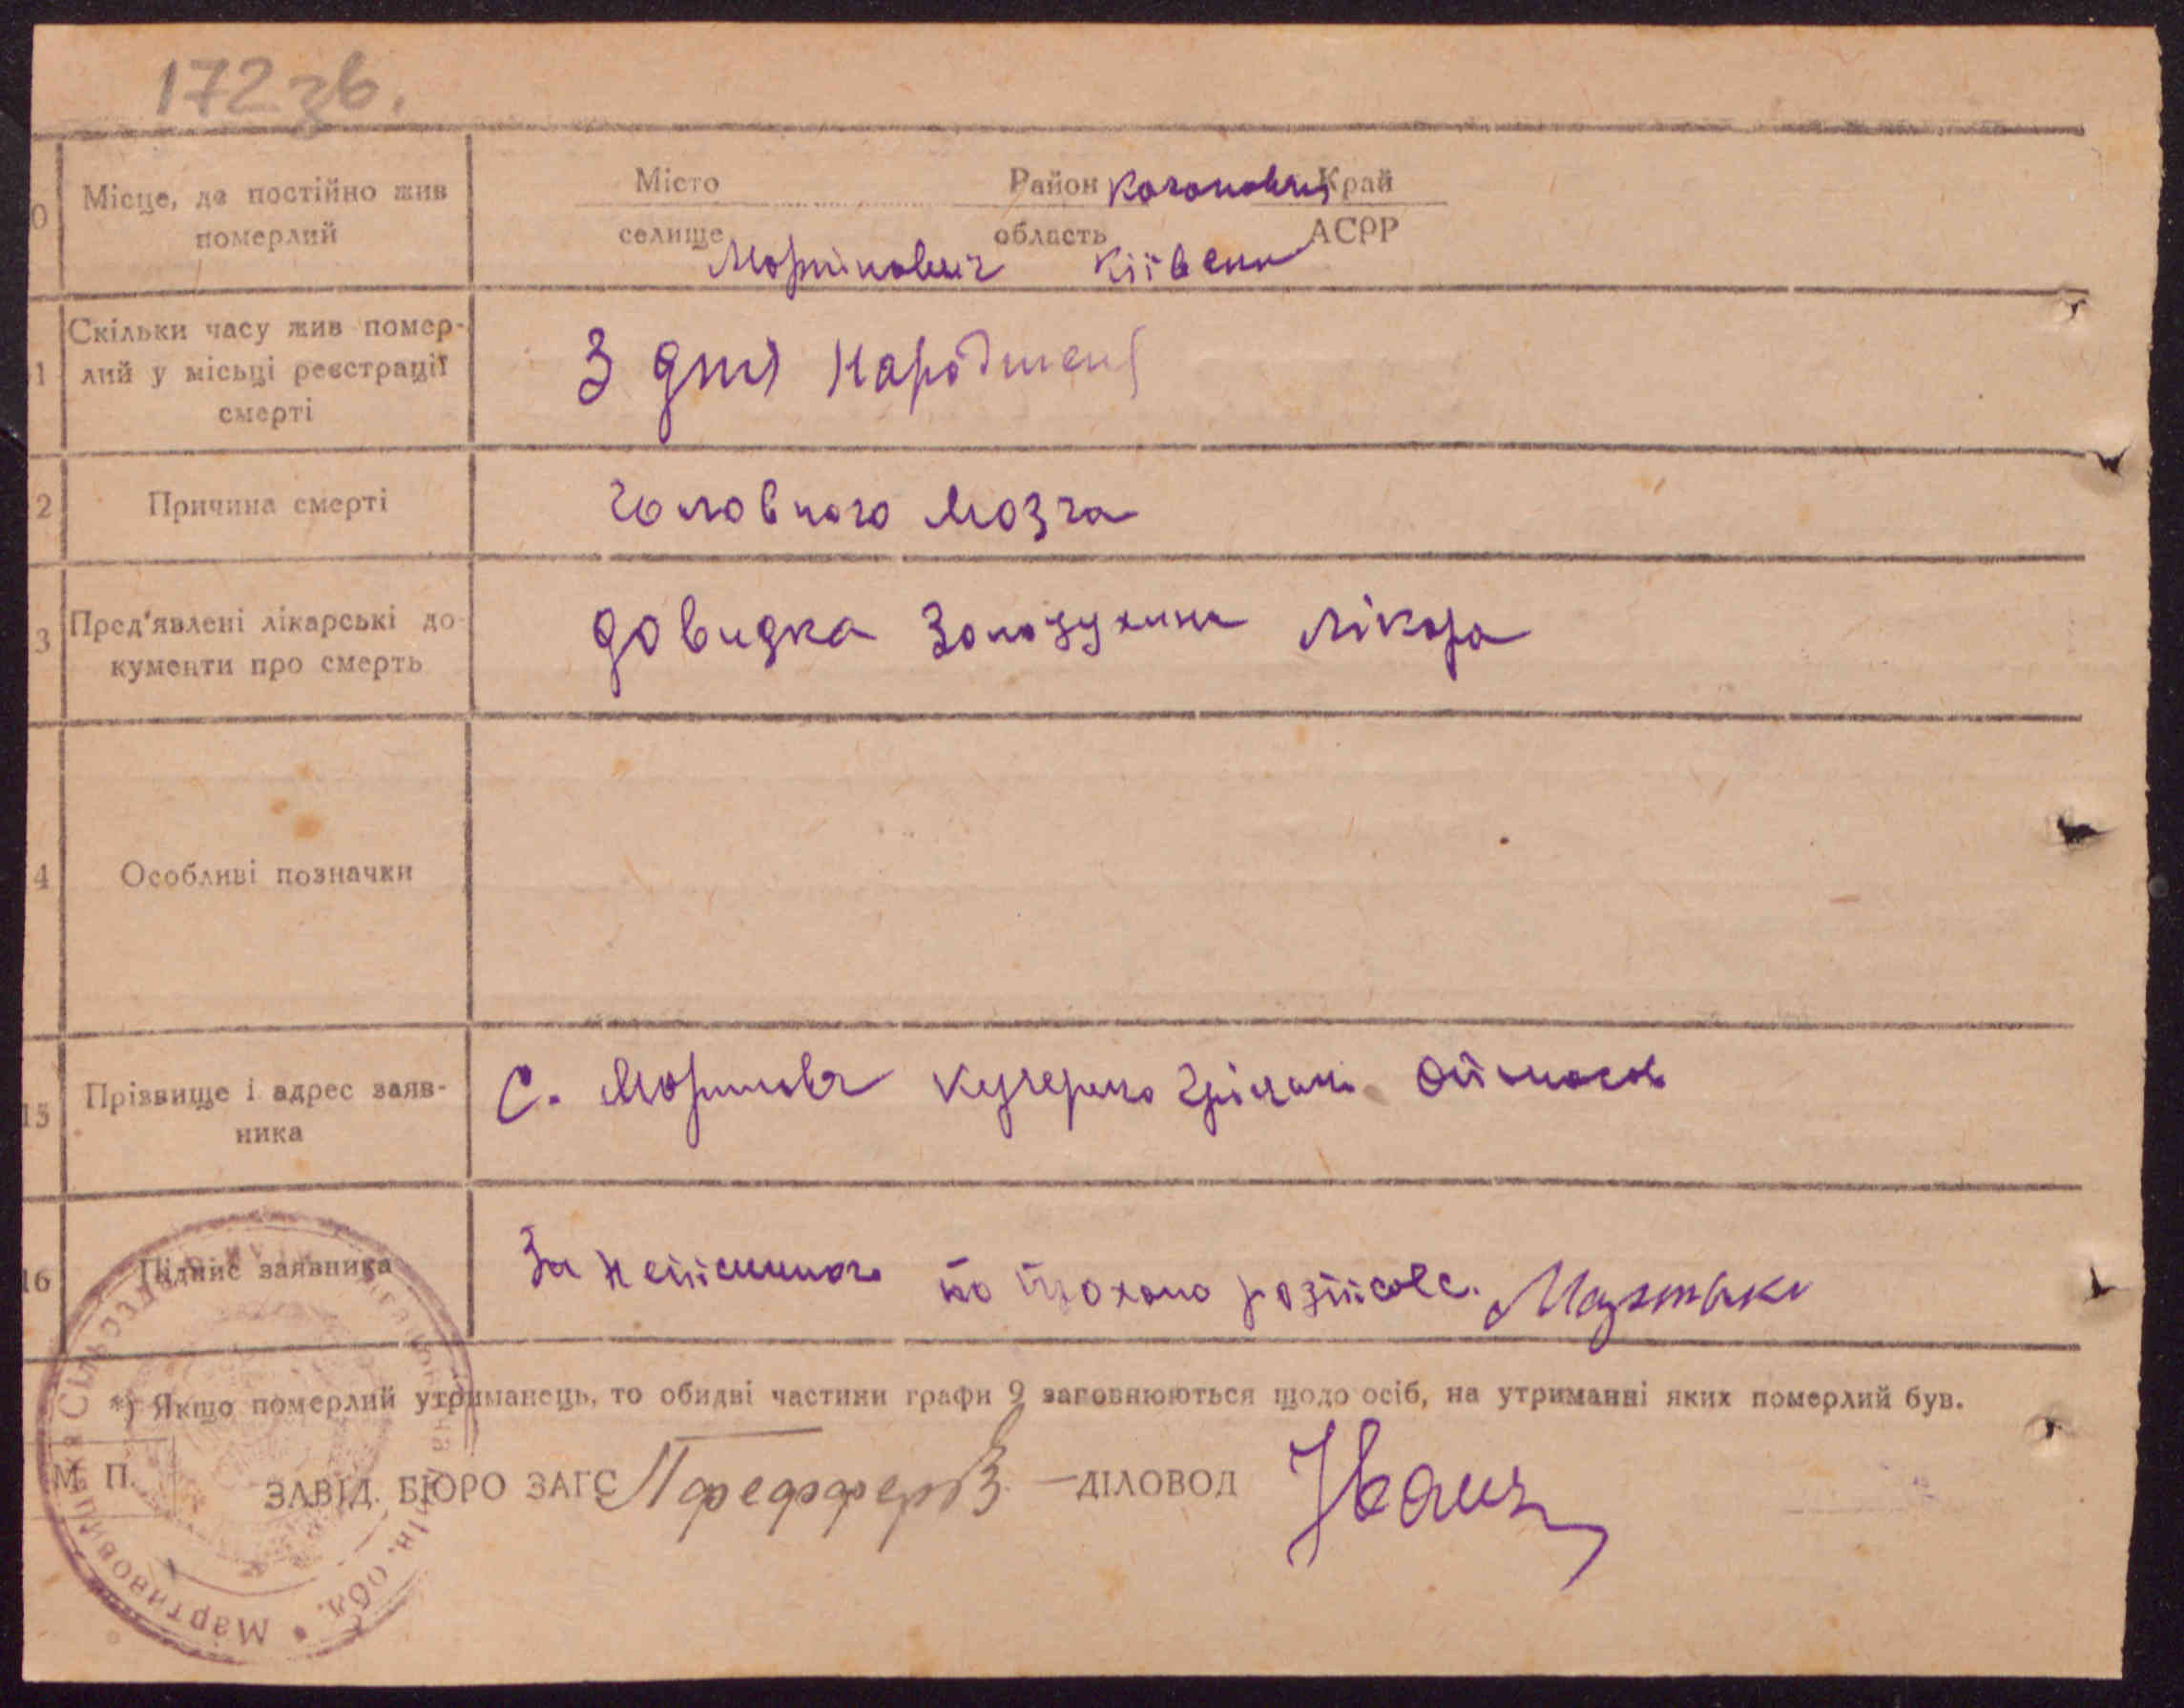 172 зв.
Місце, де постійно жив
померлий
Місто
селище
Район Кагановичу Край
область АСРР
Мартинович Київськ
Скільки часу жив помер-
лий у місьці реєстрації
смерті
З дня народжен
2 Причина смерті
головного мозга
3 Пред'явлені лікарські до-
кументи про смерть
довидка лікара
4 Особливі позначки
15 Прізвище і адрес заяв-
ника
С. Мартинович Кучеренко
16 Підпис заявника
За неписменного по прохано розписавс.
*) Якщо померлий утриманець, то обидві частини графи 9 заповнюються щодо осіб, на утриманні яких померлий був.
М. П.
ЗАВІД. БЮРО ЗАГС Пфефферв ДІЛОВОД
Мартиновицька Сільоська обл.